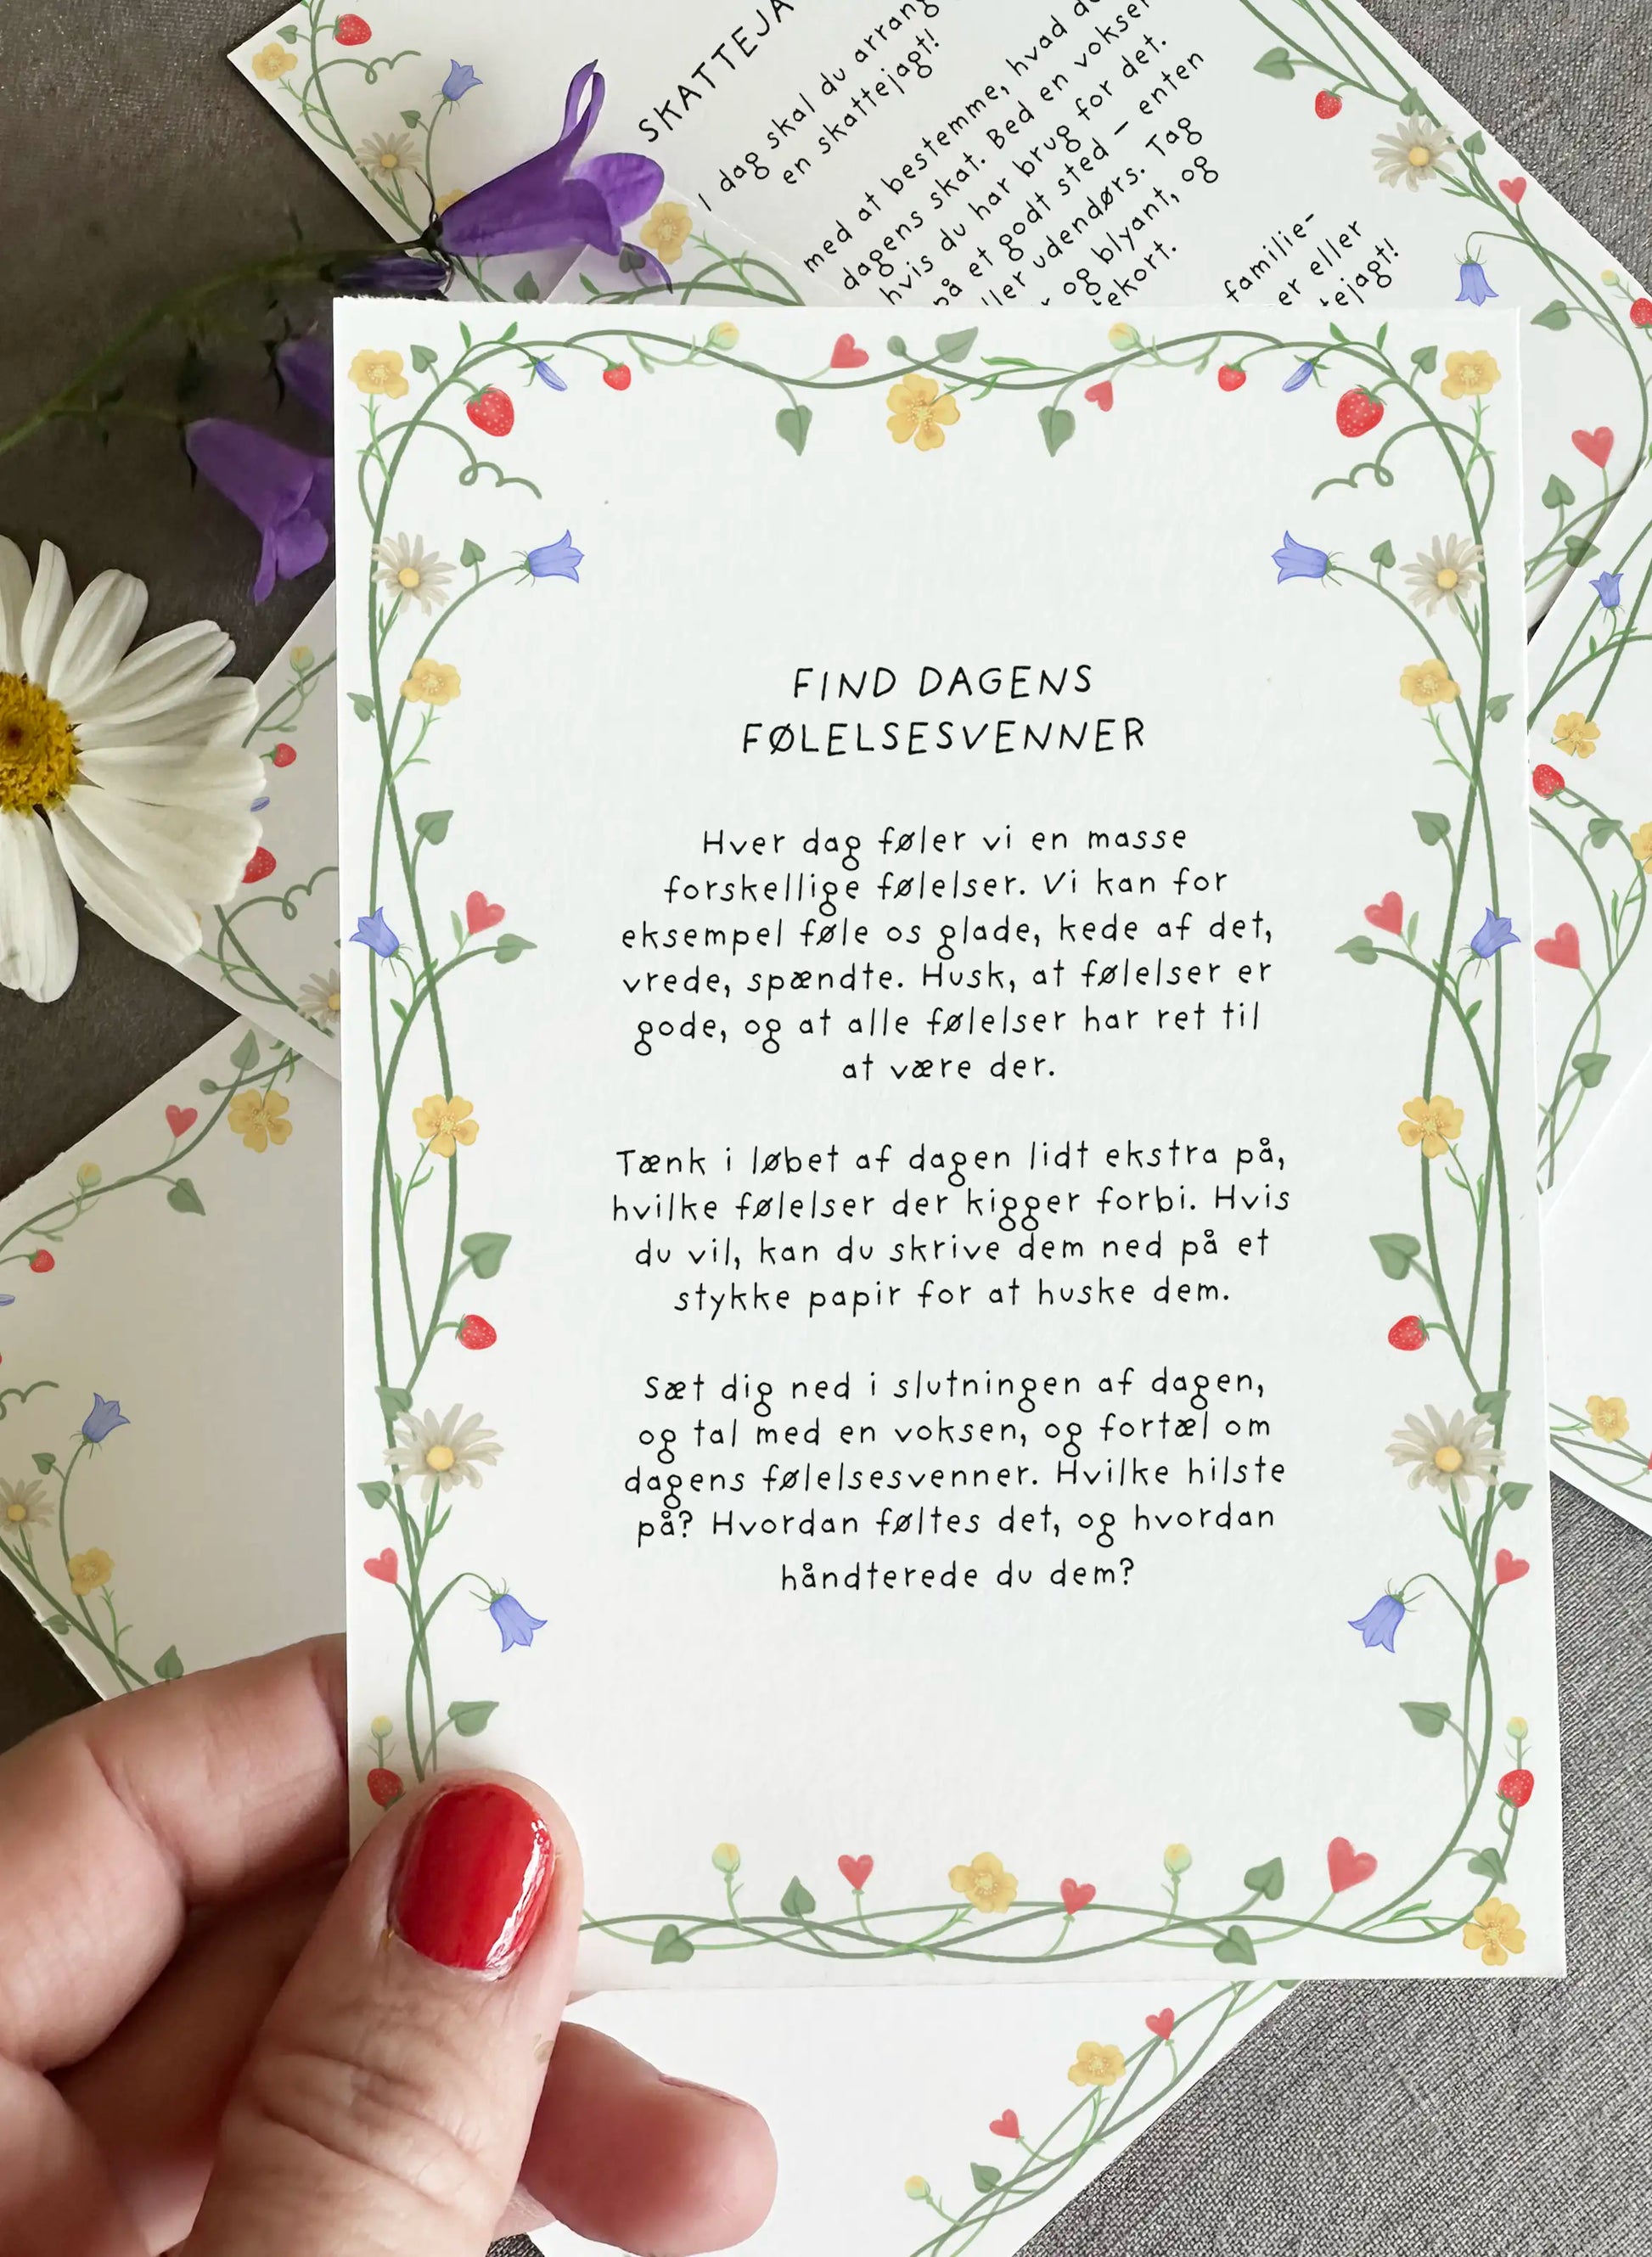 I dag skal du arrang
en skattejagt!
med at bestemme, hvad
dagens skat. Bed en
hvis du har brug for det.
på et godt sted – enten
ller udendørs. Tag
og blyant, og
tekort.
familie-
er eller
tejagt!
FIND DAGENS
FØLELSESVENNER
Hver dag føler vi en masse
forskellige følelser. Vi kan for
eksempel føle os glade, kede af det,
vrede, spændte. Husk, at følelser er
gode, og at alle følelser har ret til
at være der.
Tænk i løbet af dagen lidt ekstra på,
hvilke følelser der kigger forbi. Hvis
du vil, kan du skrive dem ned på et
stykke papir for at huske dem.
Sæt dig ned i slutningen af dagen,
og tal med en voksen, og fortæl om
dagens følelsesvenner. Hvilke hilste
på? Hvordan føltes det, og hvordan
håndterede du dem?